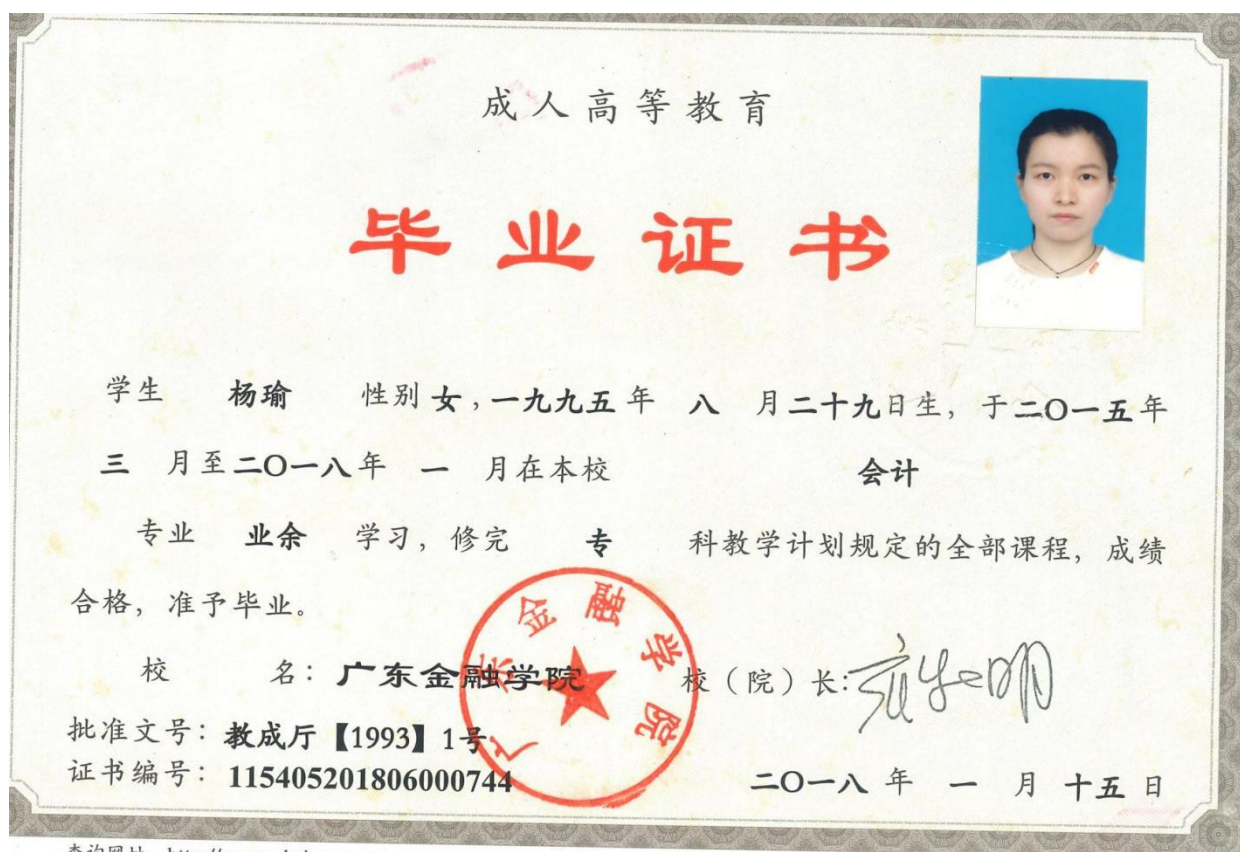 成人高等教育
毕业证书
学生 杨瑜 性别 女，一九九五 年 八 月 二十九 日生，于 二〇一五 年
三 月至 二〇一八 年 一 月在本校 会计
专业 业余 学习，修完 专 科教学计划规定的全部课程，成绩
合格，准予毕业。
校 名：广东金融学院 校（院）长：
批准文号：教成厅【1993】1号
证书编号：115405201806000744
二〇一八 年 一 月 十五 日
广东金融学院